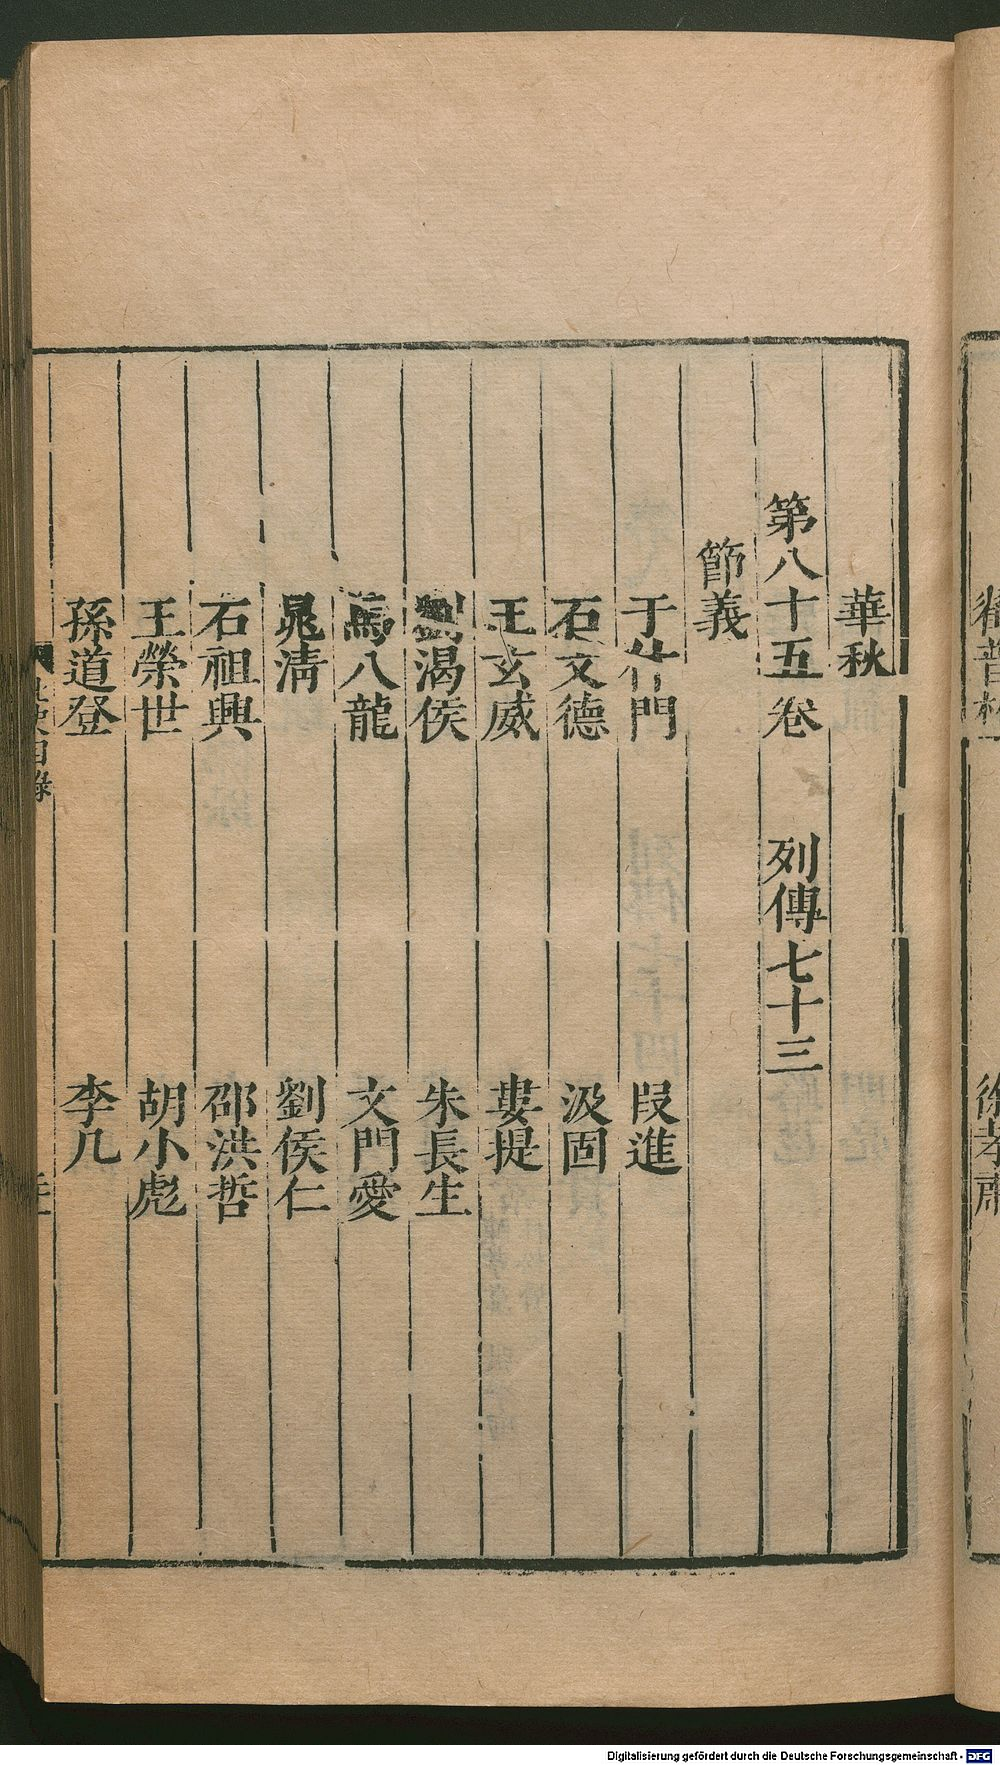 華秋
第八十五卷 列傳七十三
節義
于什門 段進
石文德 汲固
王玄威 婁提
劉渴侯 朱長生
馬八龍 文門愛
晁清 劉侯仁
石祖興 邵洪哲
王榮世 胡小彪
孫道登 李几
北史目錄
Digitalisierung gefördert durch die Deutsche Forschungsgemeinschaft - DFG